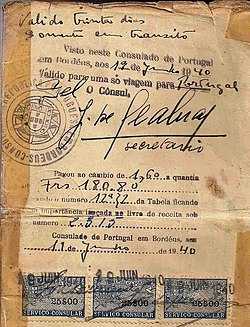 Valido trinta dias
somente em transito
Visto neste Consulado de Portugal
em Bordéus, aos 12 de Junho 1940
Válido para uma só viagem para Portugal
O Cônsul,
secretario
Pagou ao câmbio de 1,60 a quantia
Frs 180.80
sob o numero 1272 da Tabela ficando
a importância lançada no livro de receita sob
o numero
Consulado de Portugal em Bordéus,
em 11 de Junho de 1940
JUN 1940
25$00 25$00 25$00
SERVIÇO CONSULAR SERVIÇO CONSULAR SERVIÇO CONSULAR